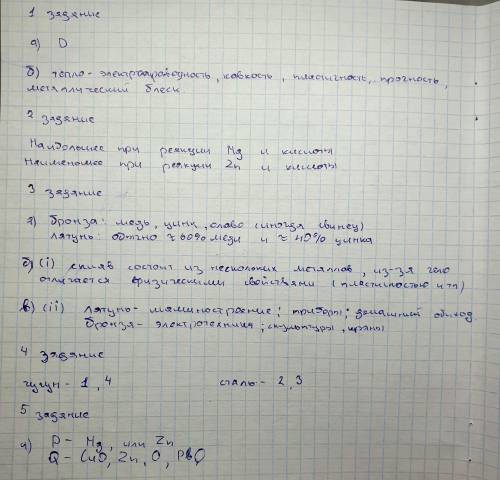 1 задание
а) D
б) тепло- электропроводность, ковкость, пластичность, прочность,
металлический блеск
2 задание
Наибольшее при реакции Mg и кислоты
Наименьшее при реакции Zn и кислоты
3 задание
а) бронза: медь, цинк, олово (иногда свинец)
латунь: обычно ≈ 60% меди и ≈ 40% цинка
б) (i) сплав состоит из нескольких металлов, из-за чего
отличается физическими свойствами (пластичностью и тп)
в) (ii) латунь- машиностроение; приборы; домашний обиход
бронза- электротехника; скульптуры, краны
4 задание
чугун - 1, 4 сталь - 2, 3
5 задание
а) P - Mg, или Zn
Q - CuO, Zn, O, PbO